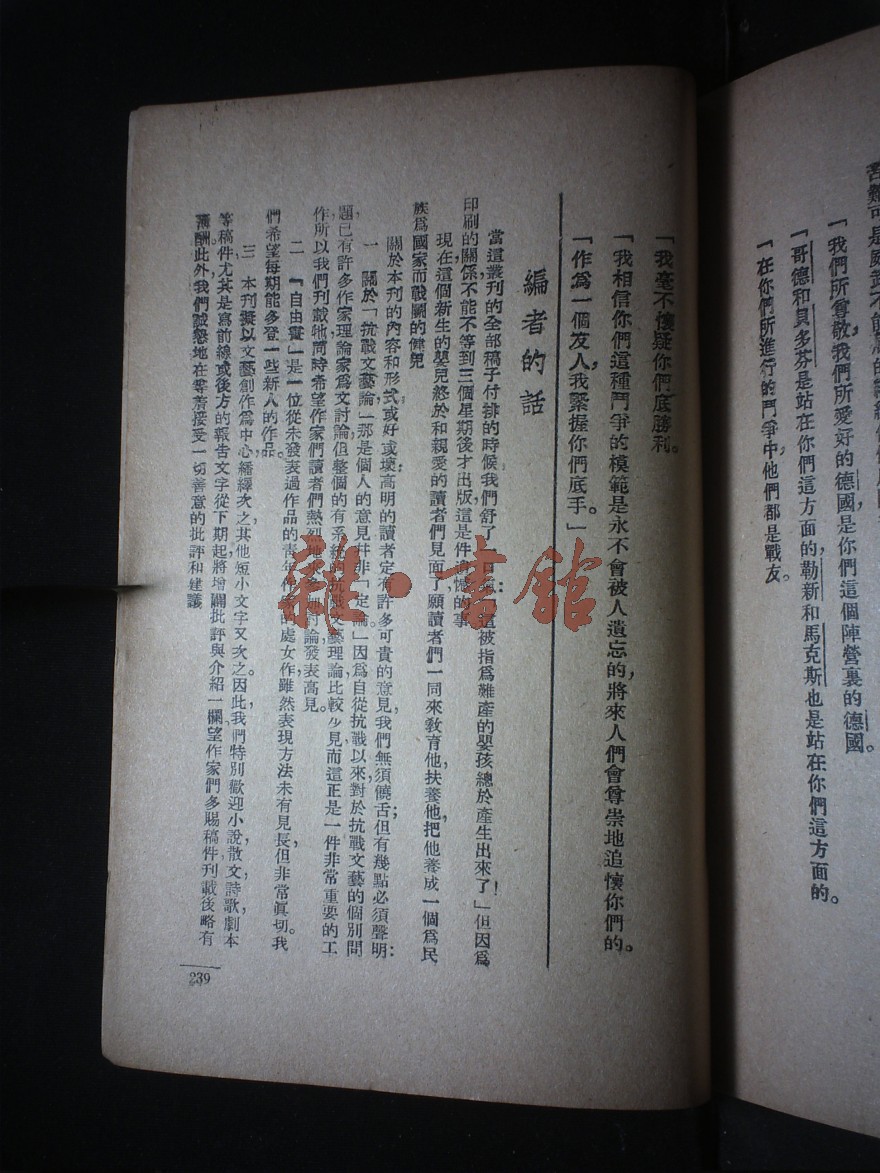 「我們所尊敬，我們所愛好的德國，是你們這個陣營裏的德國。
「哥德和貝多芬是站在你們這方面的，勒新和馬克斯也是站在你們這方面的。
「在你們所進行的鬥爭中，他們都是戰友。
「我毫不懷疑你們底勝利。
「我相信你們這種鬥爭的模範是永不會被人遺忘的，將來人們會尊崇地追懷你們的。
「作爲一個友人，我緊握你們底手。」
編者的話
當這叢刊的全部稿子付排的時候，我們舒了一口氣：「這被指爲難產的嬰孩總於產生出來了！」但因爲
印刷的關係，不能不等到三個星期後才出版，這是件憾的事
現在，這個新生的嬰兒終於和親愛的讀者們見面了，願讀者們一同來敎育他，扶養他，把他養成一個爲民
族爲國家而戰鬭的健兒
關於本刊的內容和形式，或好或壞，高明的讀者定有許多可貴的意見，我們無須饒舌；但有幾點必須聲明：
一　關於「抗戰文藝論」，那是個人的意見，幷非「定論」因爲自從抗戰以來，對於抗戰文藝的個別問
題，已有許多作家理論家爲文討論，但整個的有系統的抗戰文藝理論比較少見，而這正是一件非常重要的工
作，所以我們刊載牠，同時希望作家們讀者們熱烈地來參加討論，發表高見。
二　「自由畫」是一位從未發表過作品的靑年作家的處女作，雖然表現方法未有見長，但非常眞切。我
們希望每期能多登一些新人的作品。
三　本刊擬以文藝創作爲中心，繙繹次之，其他短小文字又次之。因此，我們特別歡迎小說，散文，詩歌，劇本
等稿件，尤其是寫前線或後方的報告文字，從下期起，將增闢批評與介紹一欄，望作家們多賜稿件，刊載後略有
薄酬，此外，我們誠懇地在等着接受一切善意的批評和建議
239
雜·書館